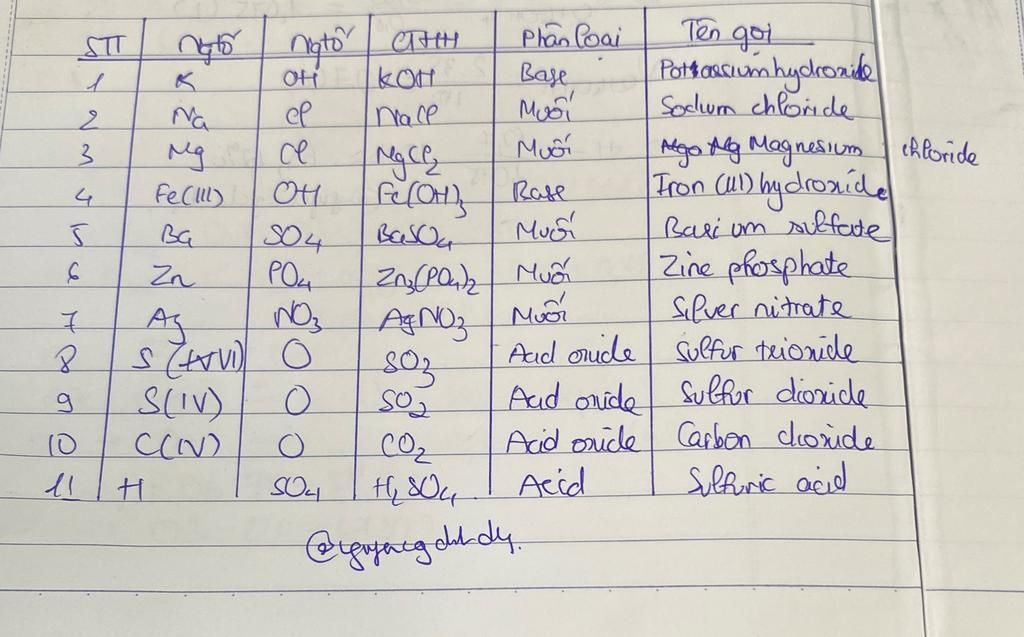 STT Ngtố Ngtố CTHH Phân loại Tên gọi
1 K OH KOH Base Pottassium hydroxide
2 Na Cl NaCl Muối Sodium chloride
3 Mg Cl MgCl2 Muối Magnesium chloride
4 Fe(III) OH Fe(OH)3 Base Iron (III) hydroxide
5 Ba SO4 BaSO4 Muối Barium sulfate
6 Zn PO4 Zn3(PO4)2 Muối Zinc phosphate
7 Ag NO3 AgNO3 Muối Silver nitrate
8 S (VI) O SO3 Acid oxide Sulfur trioxide
9 S(IV) O SO2 Acid oxide Sulfur dioxide
10 C(IV) O CO2 Acid oxide Carbon dioxide
11 H SO4 H2SO4 Acid Sulfuric acid